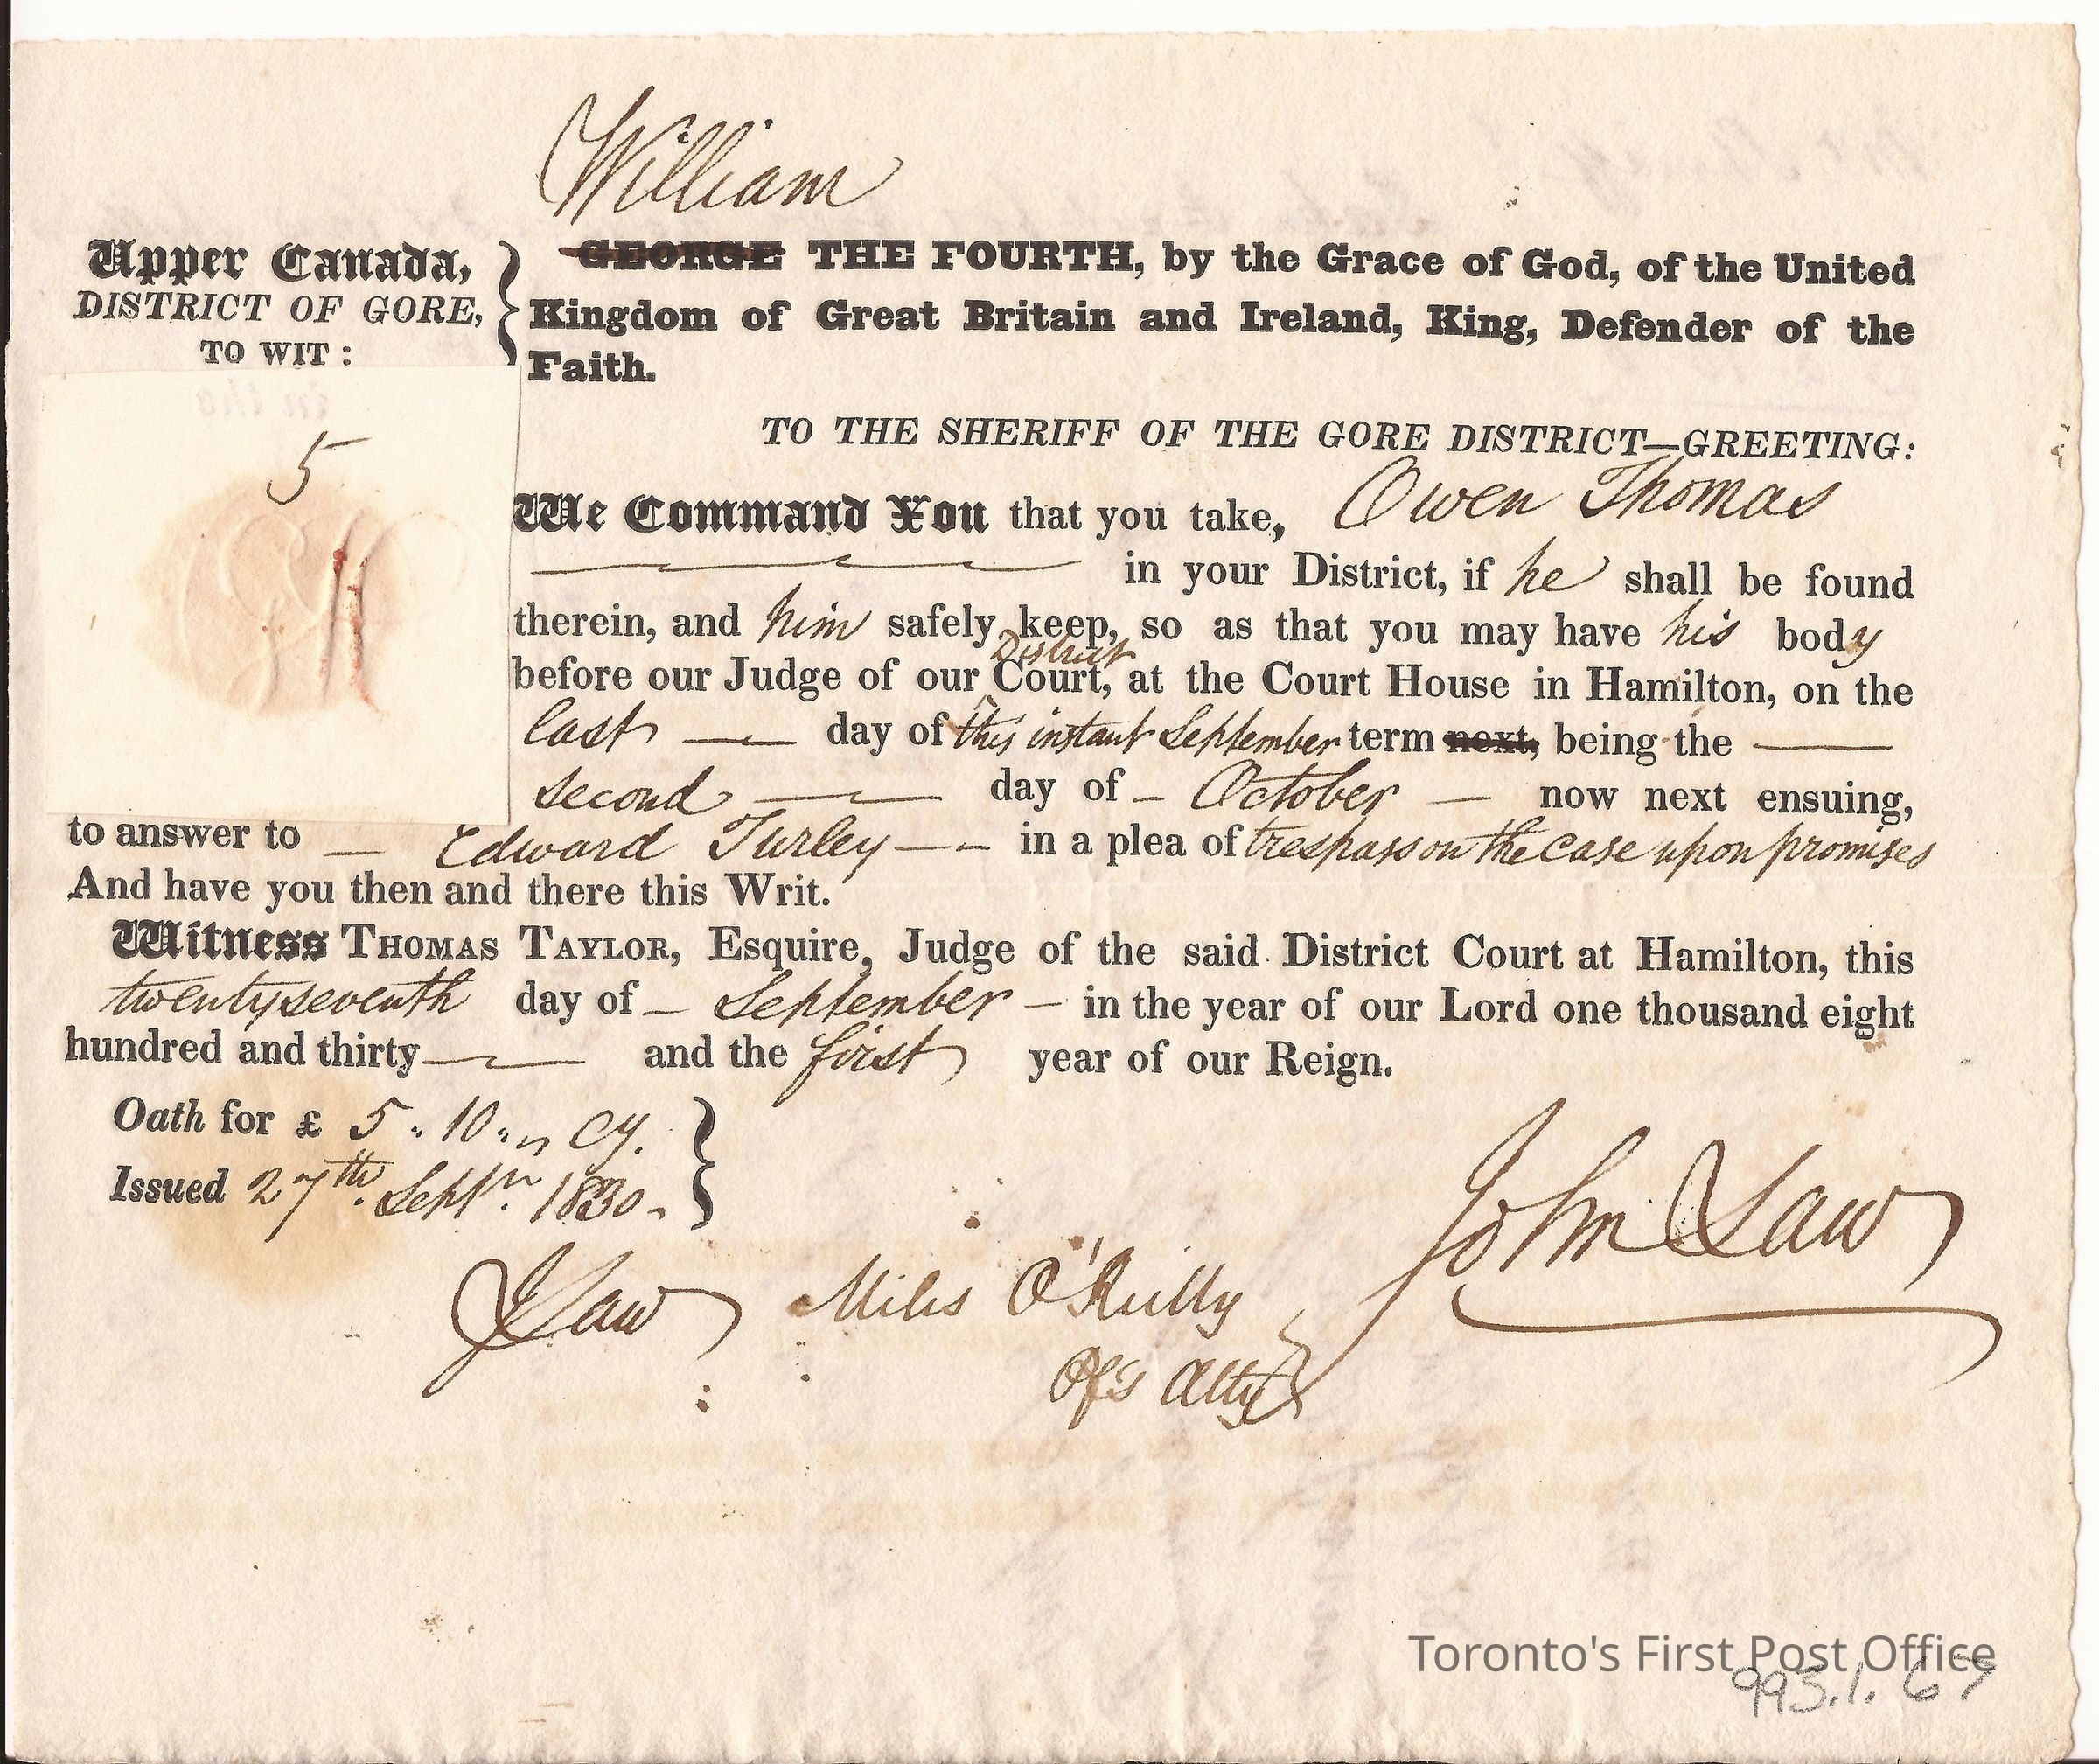 William
Upper Canada,
DISTRICT OF GORE,
TO WIT :
GEORGE THE FOURTH, by the Grace of God, of the United
Kingdom of Great Britain and Ireland, King, Defender of the
Faith.
TO THE SHERIFF OF THE GORE DISTRICT—GREETING:
5
We Command You that you take, Owen Thomas
in your District, if he shall be found
therein, and him safely keep, so as that you may have his body
District
before our Judge of our Court, at the Court House in Hamilton, on the
last — day of this instant September term next, being the —
second — day of – October — now next ensuing,
to answer to — Edward Turley —– in a plea of trespass on the case upon promises
And have you then and there this Writ.
Witness THOMAS TAYLOR, Esquire, Judge of the said District Court at Hamilton, this
twenty seventh day of – September – in the year of our Lord one thousand eight
hundred and thirty — and the first year of our Reign.
Oath for £ 5 .. 10 .. ,, Cy.
Issued 27th. Septr. 1830.
John Law
J Law
Miles O'Reilly
Atty
Toronto's First Post Office
993.1.67